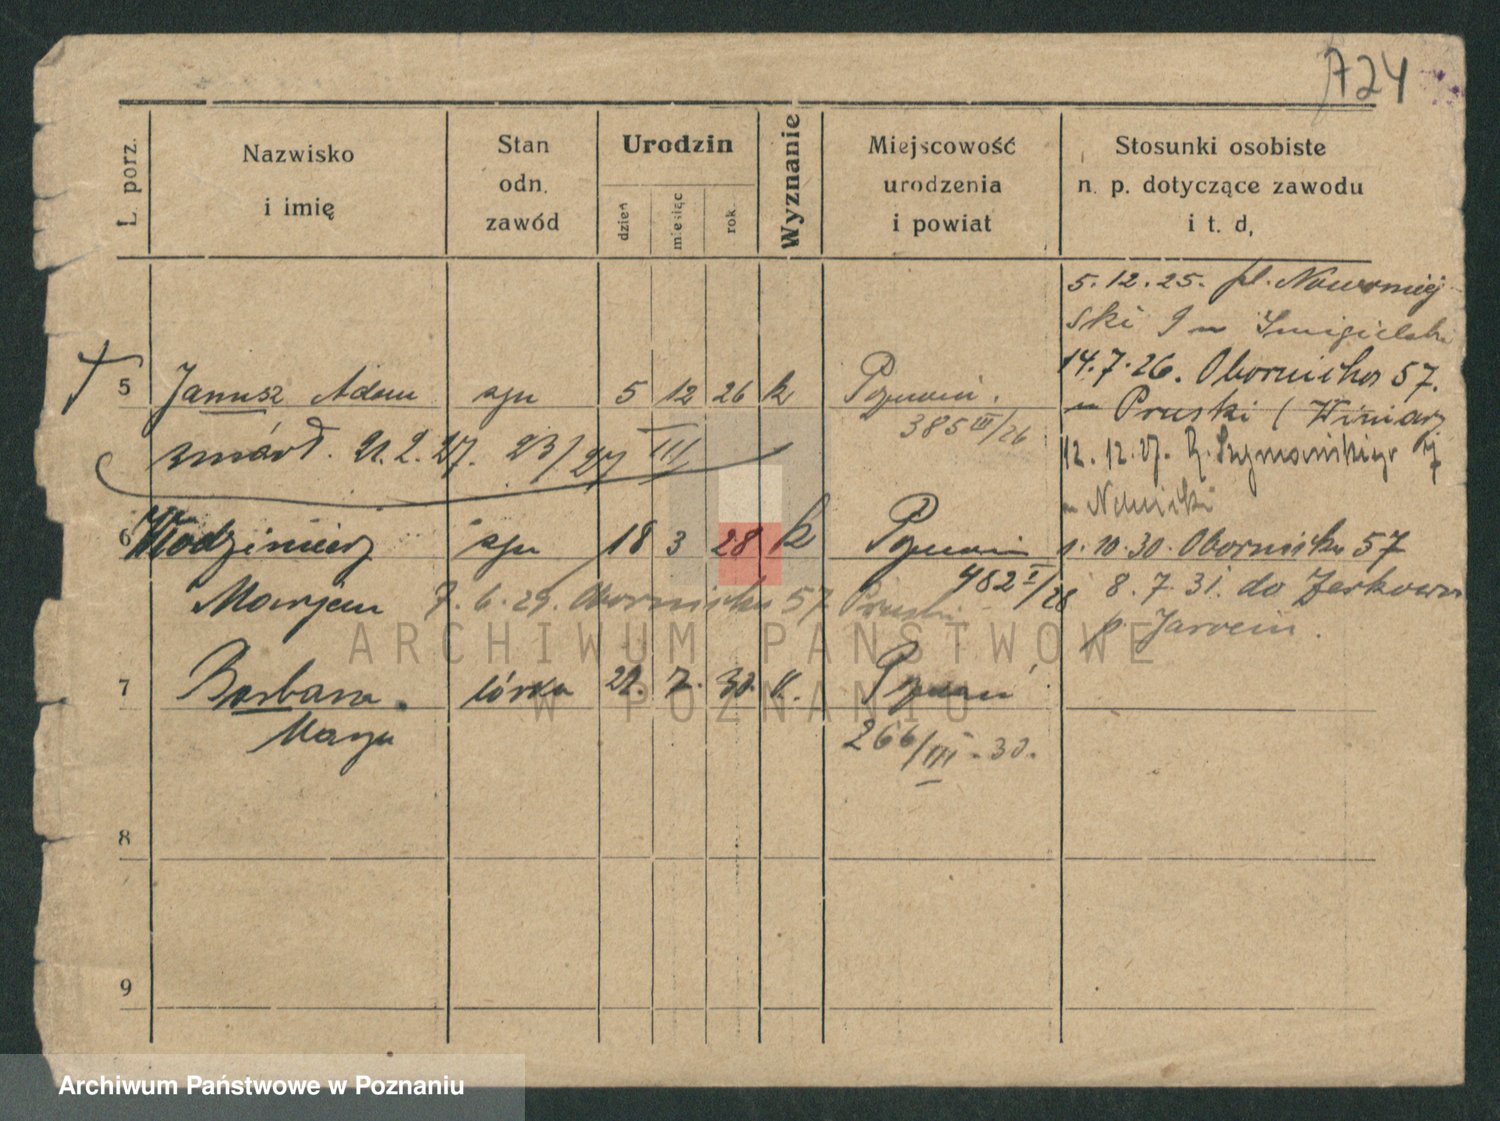 724
L. porz.
Nazwisko
i imię
Stan
odn.
zawód
Urodzin
dzień
miesiąc
rok.
Wyznanie
Miejscowość
urodzenia
i powiat
Stosunki osobiste
n. p. dotyczące zawodu
i t. d,
5. 12. 25. pl. Nowomiej
ski 9 m Smigielski
14. 7. 26. Obornicka 57.
5 Janusz Adam syn 5 12 26 k Poznań.
m Pruski (Winiary
385 III/26
zmarł. 21. 2. 27. 23/27 III
12. 12. 27. Szymańskiego
m Nowicki
6 Włodzimierz syn 18 3 28 k Poznań
1. 10. 30. Obornicka 57
482 I/28
Marjan 7. 6. 29. Obornicka 57 Pruski
8. 7. 31. do Żerkowa
p. Jarocin.
ARCHIWUM PAŃSTWOWE
W POZNANIU
7 Barbara córka 21. 7. 30. k. Poznań
Marja
266/III - 30.
8
9
Archiwum Państwowe w Poznaniu